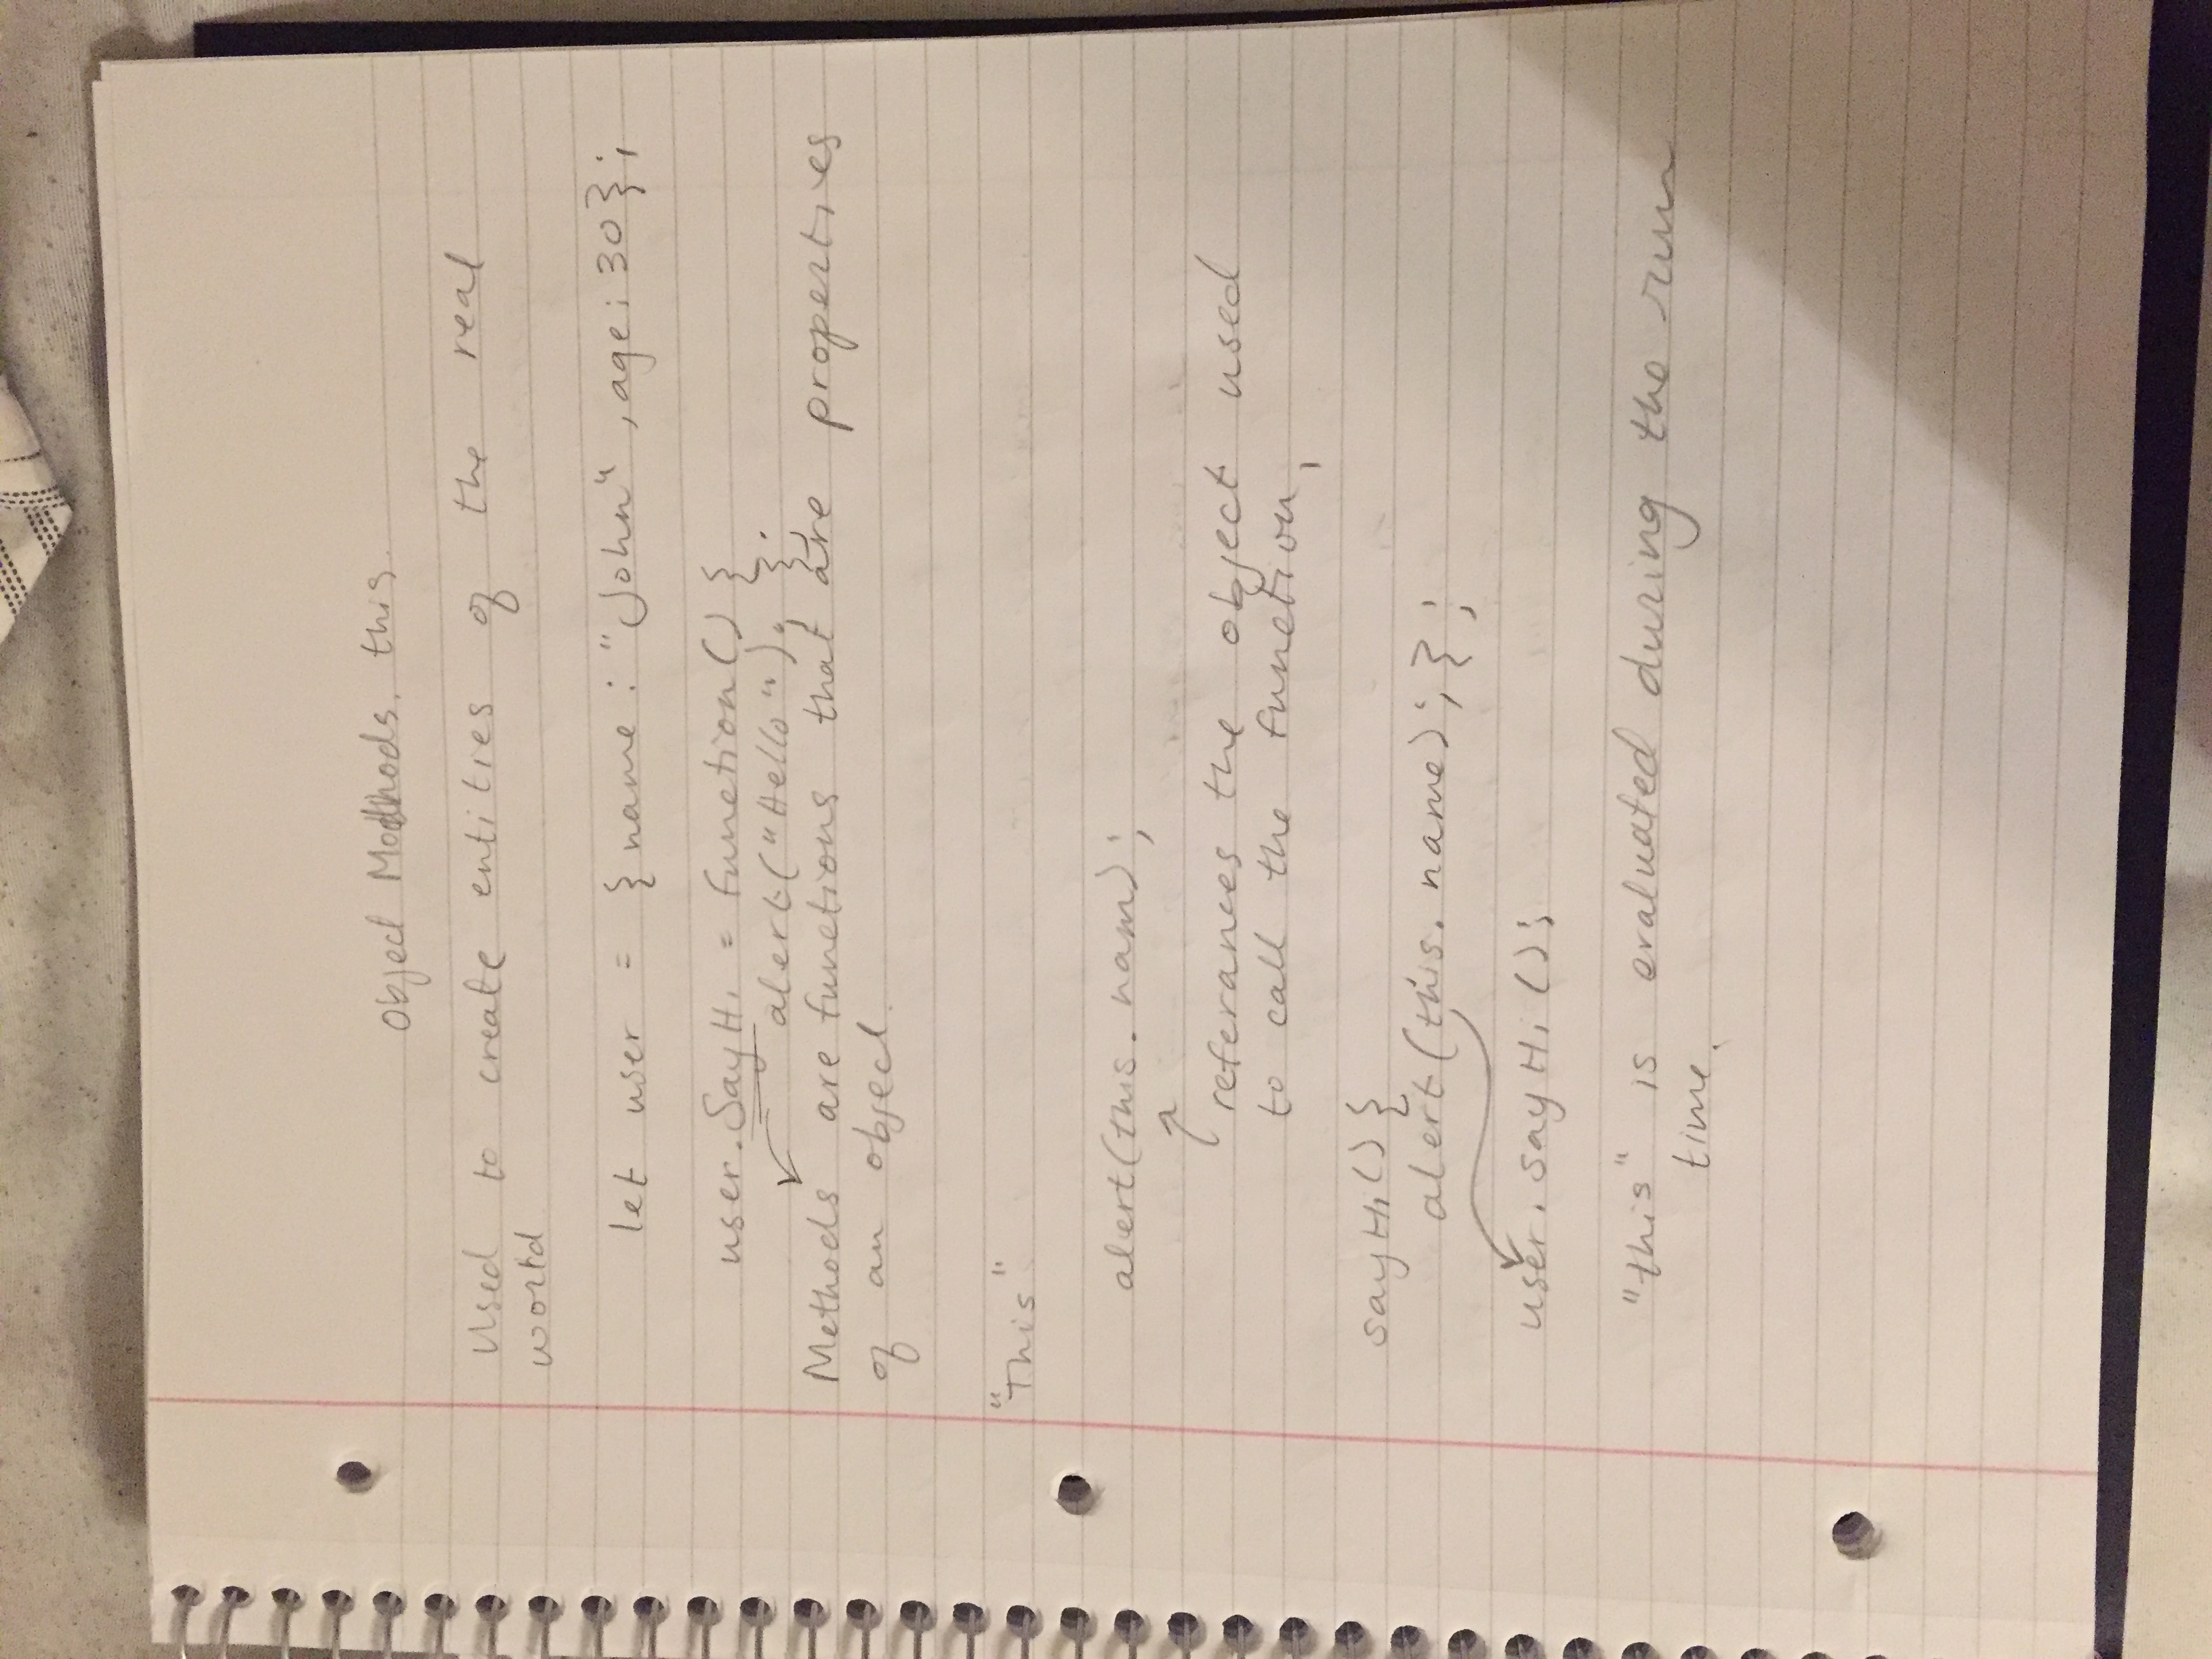 Object Methods. this.
Used to create entities of the real
world
let user = {name: "John", age: 30};
user.SayHi = function() {
alert("Hello"); };
Methods are functions that are properties
of an object.
"This"
alert(this.nam);
referances the object used
to call the function,
sayHi() {
alert(this.name); };
user.sayHi();
"this" is evaluated during the run
time.